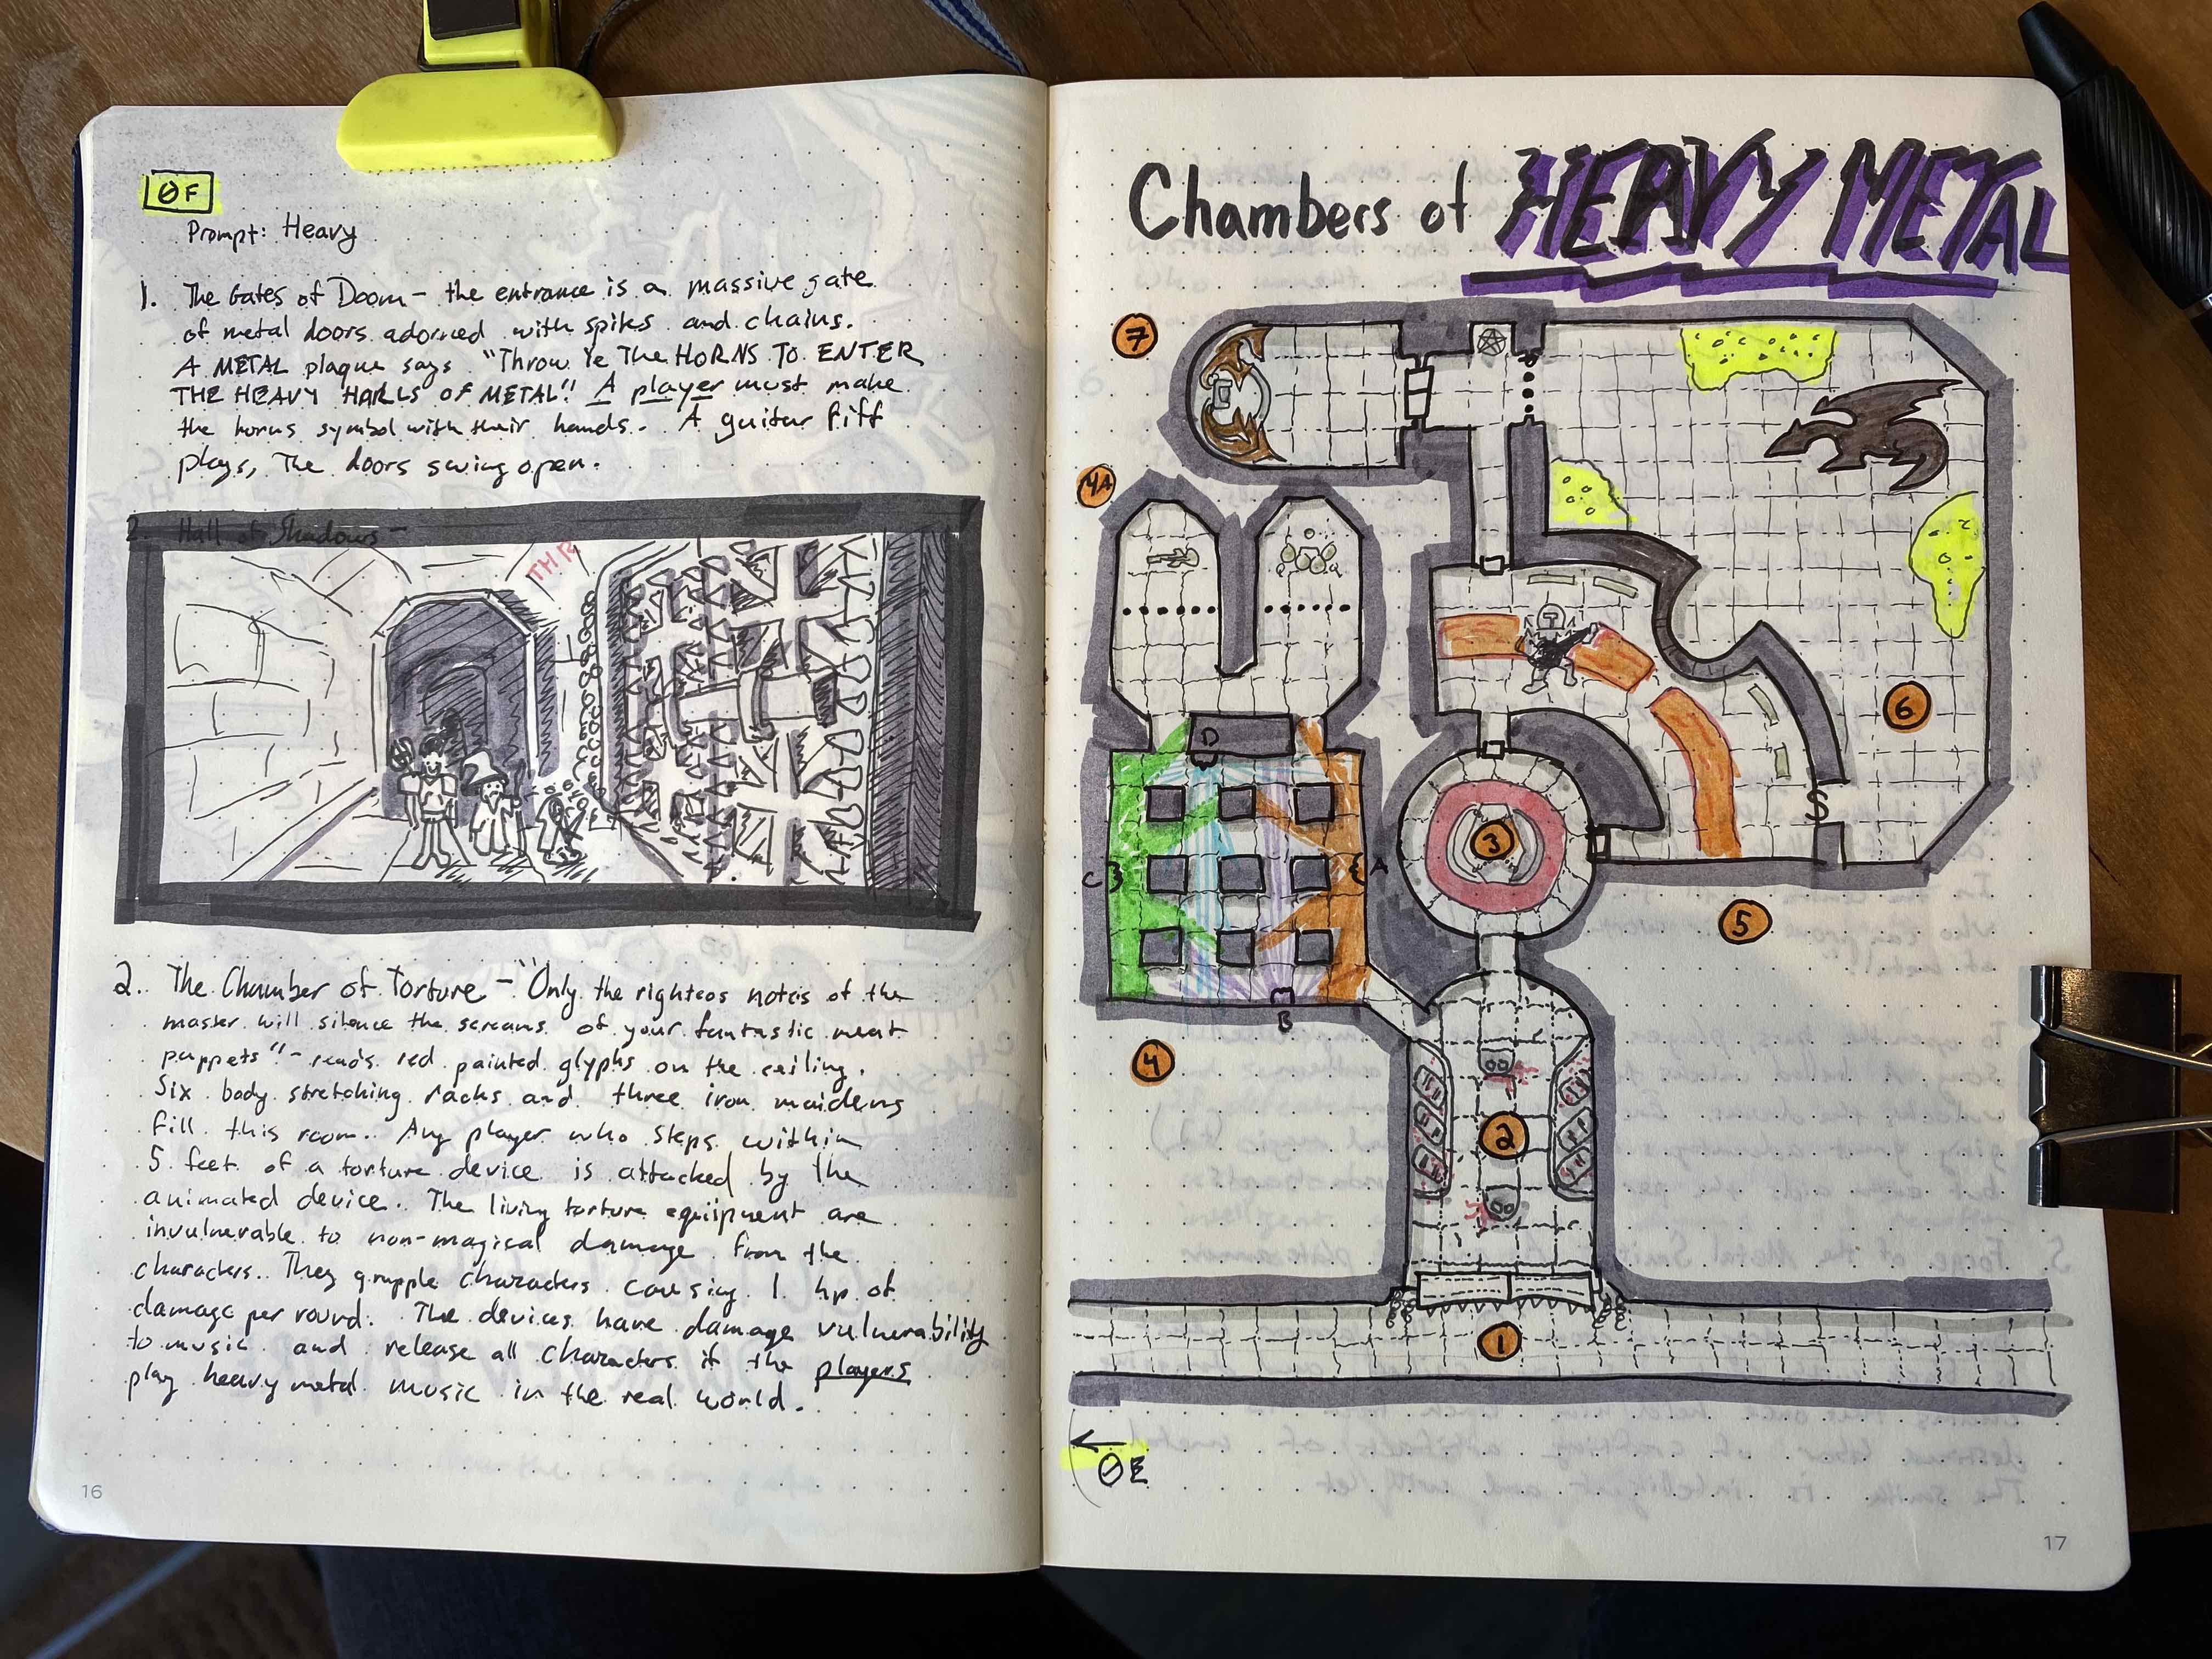 ØF
Prompt: Heavy
1. The Gates of Doom - the entrance is a massive gate
of metal doors adorned with spikes and chains.
A METAL plaque says "Throw Ye The HORNS TO ENTER
THE HEAVY HALLS OF METAL"! A player must make
the horns symbol with their hands. A guitar riff
plays, The doors swing open.
2. Hall of Shadows -
THR
2. The Chamber of Torture - "Only the righteos notes of the
master will silence the screams of your fantastic meat
puppets" - reads red painted glyphs on the ceiling.
Six body stretching racks and three iron maidens
fill this room. Any player who steps within
5 feet of a torture device is attacked by the
animated device. The living torture equiipment are
invulnerable to non-magical damage from the
characters. They grapple characters causing 1 hp of
damage per round. The devices have damage vulnerability
to music and release all characters if the players
play heavy metal music in the real world.
16
Chambers of HEAVY METAL
7
4A
6
D
S
3
C
A
5
B
4
2
1
ØE
17